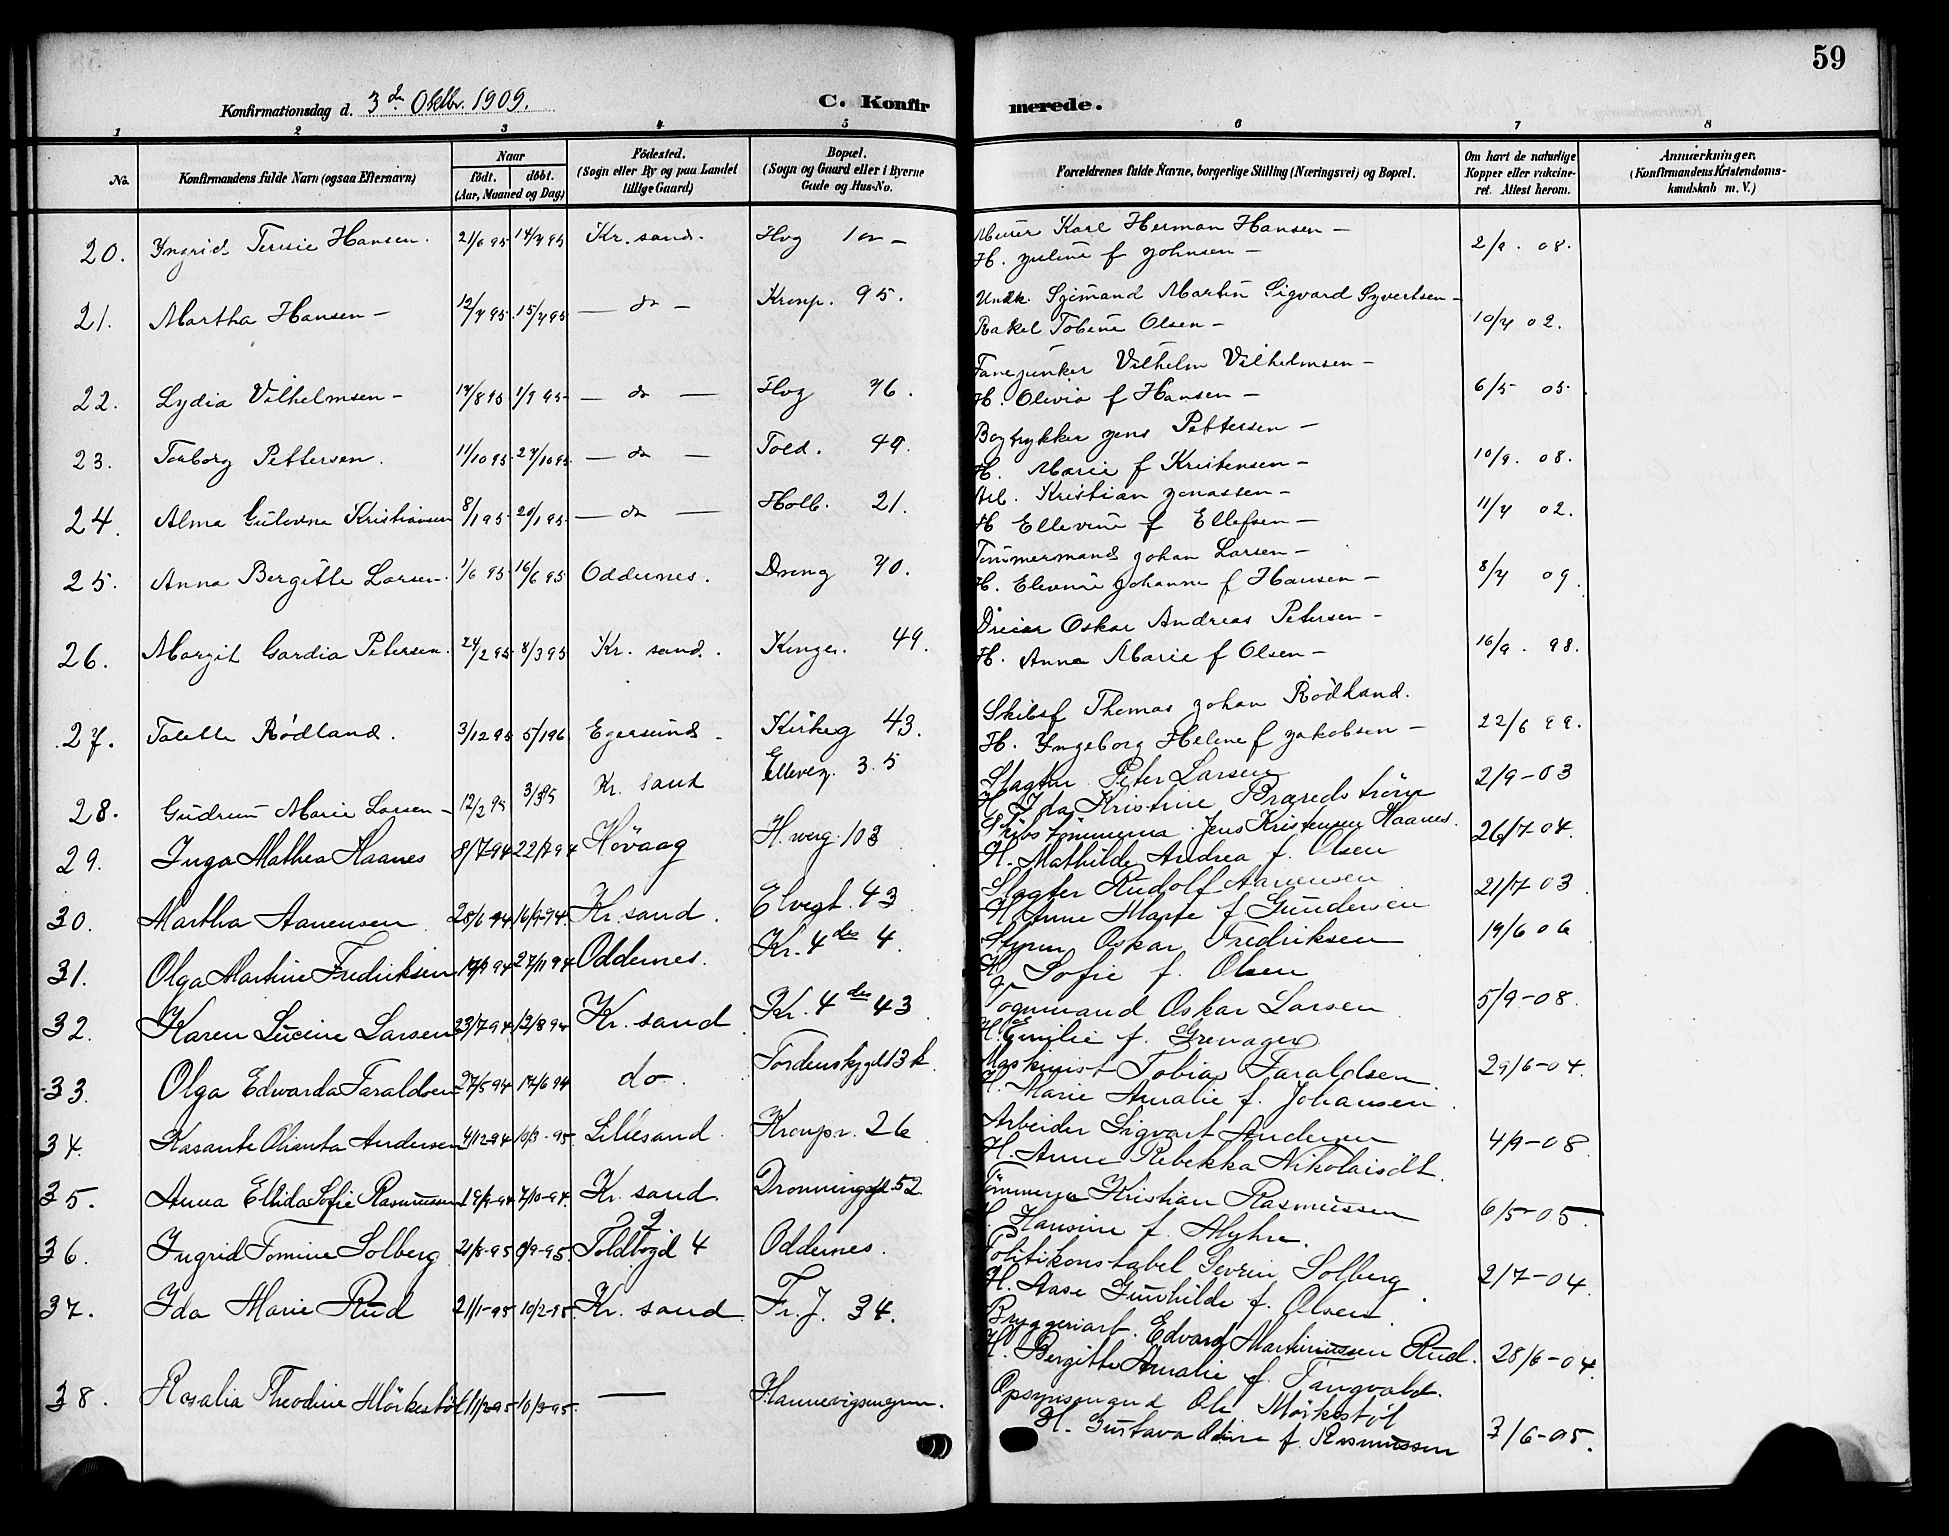 59
Konfirmationsdag d. 3die Oktbr. 1909.
C. Konfirmerede.
1 2 3 4 5 6 7 8
No. Konfirmandens fulde Navn (ogsaa Efternavn) Naar født. døbt. (Aar, Maaned og Dag) Födested. (Sogn eller By og paa Landet tillige Gaard) Bopæl. (Sogn og Gaard eller i Byerne Gade og Hus-No. Forældrenes fulde Navne, borgerlige Stilling (Næringsvei) og Bopæl. Om havt de naturlige Kopper eller vakcineret. Attest herom. Anmærkninger. (Konfirmandens Kristendomskundskab m. V.)
20. Yngrid Terisie Hansen. 21/6 95 14/7 95 Kr. sand. Hvg Murer Karl Herman Hansen – 2/9. 08.
H. Juline f Johnsen –
21. Martha Hansen – 12/7 95 15/7 95 – do – Kronp. 95. Undk. Sjømand Martin Sigvard Syvertsen –
Rakel Tobine Olsen – 10/7 02.
22. Lydia Vilhelmsen – 17/8 95 1/9 95 – do – Hvg 76. Fanejunker Vilhelm Vilhelmsen –
H. Olivia f Hansen – 6/5 05
23. Torborg Pettersen. 11/10 95 27/10 95 – do – Told. 49. Bogtrykker Jens Pettersen –
H. Marie f Kristensen – 10/9. 08.
24. Alma Gulovna Kristiansen 8/1 95 29/1 95 – do – Holb. 21. Arb. Kristian Jonassen –
H Ellevine f Ellefsen – 11/7 02.
25. Anna Bergitte Larsen. 1/6 95 16/6 95 Oddernes. Drong 70. Tømmermand Johan Larsen –
H. Elevine Johanne f Hansen – 8/7 09.
26. Margit Gardia Petersen. 24/2 95 8/3 95 Kr. sand. Konger. 49. Dreier Oskar Andreas Petersen –
H. Anna Marie f Olsen – 16/9. 98.
27. Talette Rødland. 3/12 95 5/1 96 Egersund – Kirkeg 43. Skibsf Thomas Johan Rødland.
H. Yngeborg Helene f Jakobsen – 22/6 99.
28. Gudrun Marie Larsen – 12/2 95 3/3 95 Kr. sand Elleveg. 35 Slagter Peter Larsen 2/9-03
H. Ida Kristine Brøredstrøm
29. Inga Mathea Haanes 8/7 94 22/7 94 Høvaag H. verg. 103 Skibstømmerma. Jens Kristensen Haanes. 26/7 04.
H. Mathilde Andrea f. Olsen
30. Martha Aanensen 28/6 94 16/9-94. Kr. sand. Elvegt. 43 Slagter Rudolf Aanensen 21/7 03
H. Anne Marie f Gundersen
31. Olga Martine Fredriksen 19/9 94 27/11 94 Oddernes. Kr. 4des 4. Styrm. Oskar Fredriksen 19/6 06
H. Sofie f. Olsen
32. Karen Lucine Larsen 23/7 94 12/8 94 Kr. sand Kr. 4des 43 Vognmand Oskar Larsen 5/9-08.
H. Emilie f. Grenager
33. Olga Edwarda Taraldsen 27/5 94 17/6 94 do. Tordenskjgd 13 b Maskinist Tobias Taraldsen. 29/6-04.
H. Marie Amalie f. Johansen
34. Kasante Olianta Andersen 4/12 94 10/3-95 Lillesand. Kronpr. 26 Arbeider Sigvart Andersen 4/9-08
H. Anne Rebekka Nikolaisdt.
35. Anna Ellida Sofie Rasmussen 19/9-94 7/10-94. Kr. sand. Dronningsgd 52. Tømmerm Kristian Rasmussen 6/5-05
H. Hansine f. Myhre.
36. Ingrid Tomine Solberg 21/8-95 8/9-95. Toldbogd 4 Oddernes. Politikonstabel Sevrin Solberg 2/7-04.
H. Aase Gunhilde f. Olsen.
37. Ida Marie Rud 21/1-95 10/2-95 Kr. sand Fr. J. 34. Bryggeriarb. Edvard Martiniussen Rud. 28/6-04.
H. Bergitte Amalie f. Tangvald.
38. Rosalia Theodine Mörkestöl 11/2 95 10/3-95. – Hannevigsveien. Opsynsmand Ole Mörkestöl
H. Gustava Odine f. Rasmussen 3/6-05.